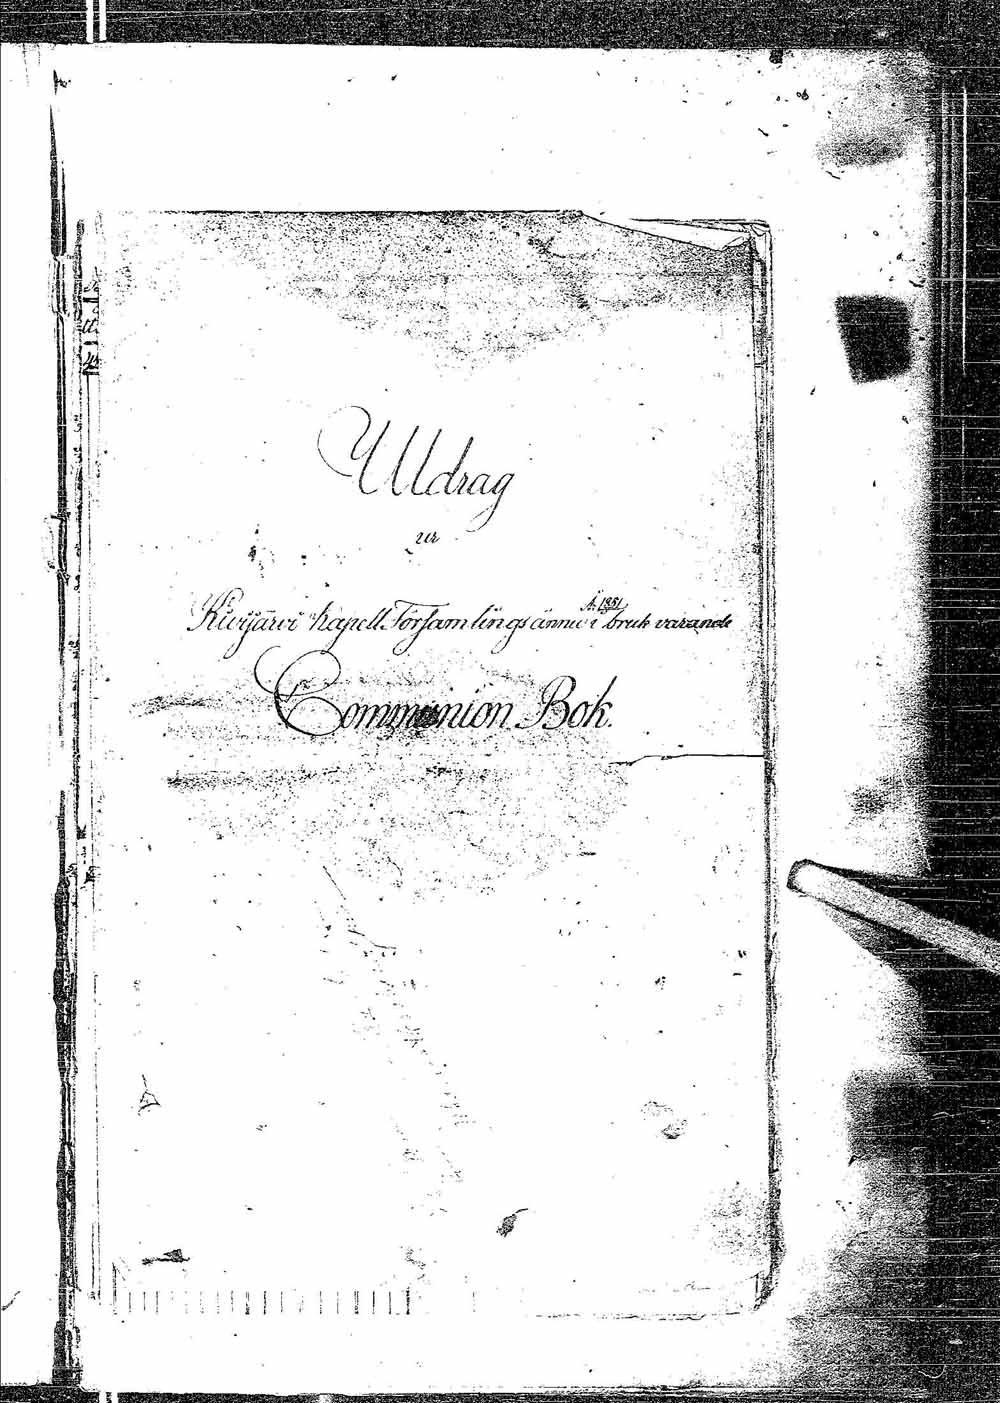 Utdrag
ur
A: 1851
Kivijärvi Kapell Församlings ännu i bruk varande
Communion Bok.